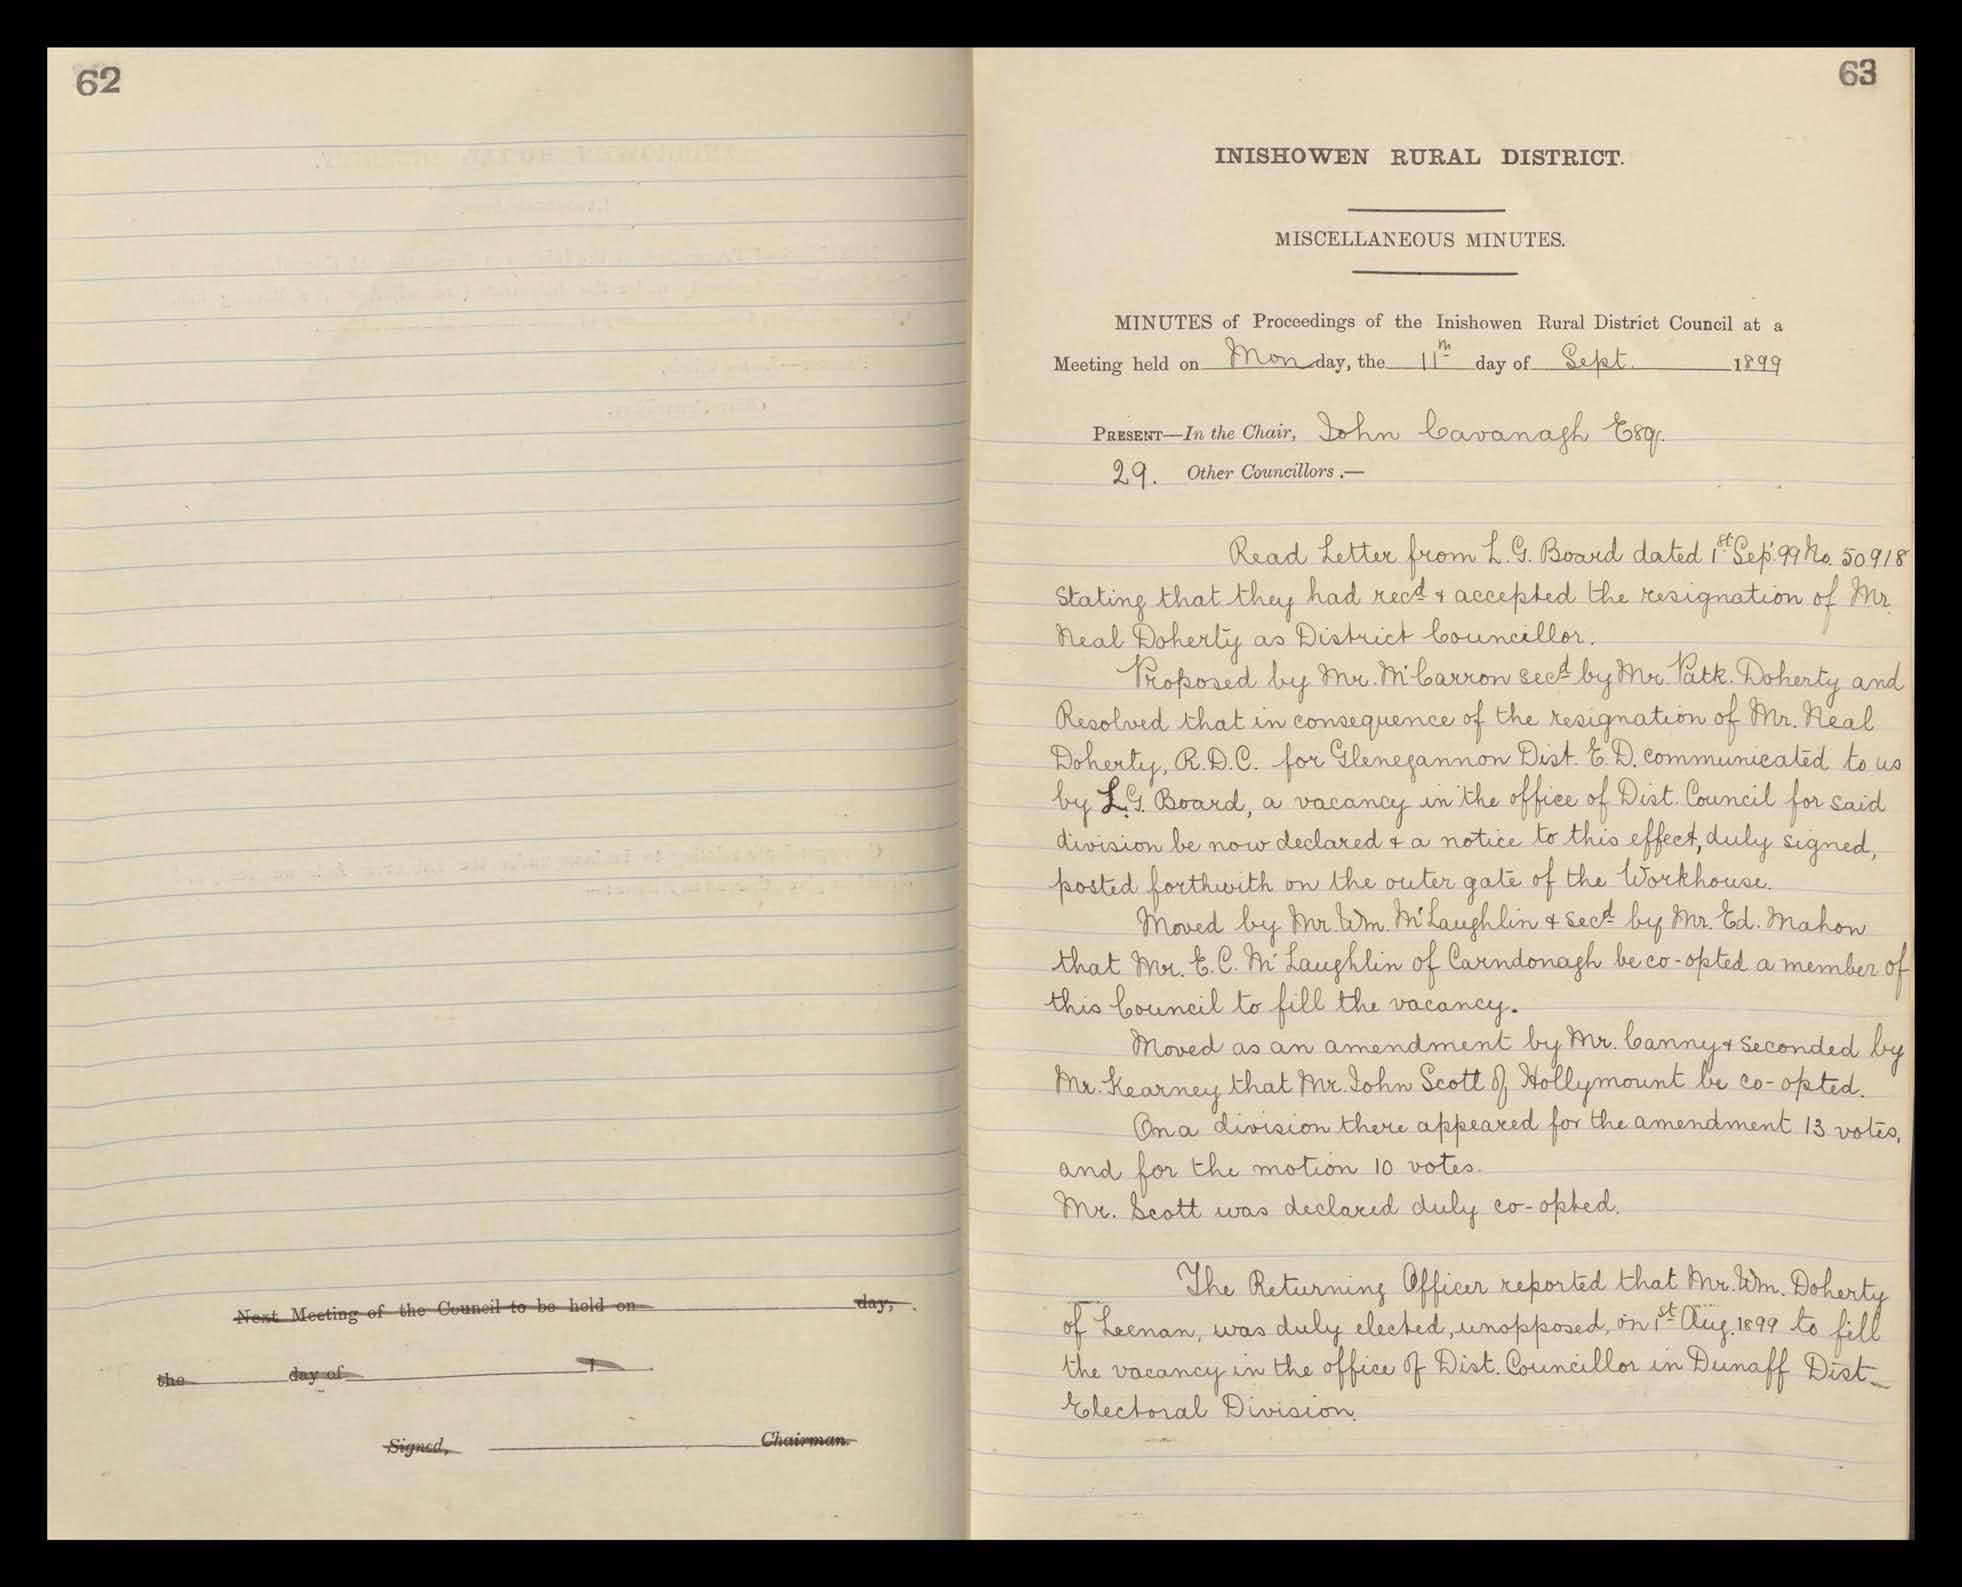 62
Next Meeting of the Council to be held on day,
the day of 1
Signed, Chairman.
63
INISHOWEN RURAL DISTRICT.
MISCELLANEOUS MINUTES.
MINUTES of Proceedings of the Inishowen Rural District Council at a
Meeting held on Monday, the 11th day of Sept. 1899
PRESENT—In the Chair, John Cavanagh Esqr.
29. Other Councillors.—
Read Letter from L.G. Board dated 1st Sep. 99 No. 50918
Stating that they had recd & accepted the resignation of Mr.
Neal Doherty as District Councillor.
Proposed by Mr. McCarron secd by Mr. Patk. Doherty and
Resolved that in consequence of the resignation of Mr. Neal
Doherty, R.D.C. for Glenegannon Dist. E.D. communicated to us
by L.G. Board, a vacancy in the office of Dist. Council for said
division be now declared & a notice to this effect, duly signed,
posted forthwith on the outer gate of the Workhouse.
Moved by Mr. Wm. McLaughlin & secd by Mr. Ed. Mahon
that Mr. E.C. McLaughlin of Carndonagh be co-opted a member of
this Council to fill the vacancy.
Moved as an amendment by Mr. Canny & seconded by
Mr. Kearney that Mr. John Scott of Hollymount be co-opted.
On a division there appeared for the amendment 13 votes,
and for the motion 10 votes.
Mr. Scott was declared duly co-opted.
The Returning Officer reported that Mr. Wm. Doherty
of Leenan, was duly elected, unopposed, on 1st Aug. 1899 to fill
the vacancy in the office of Dist. Councillor in Dunaff Dist
Electoral Division.